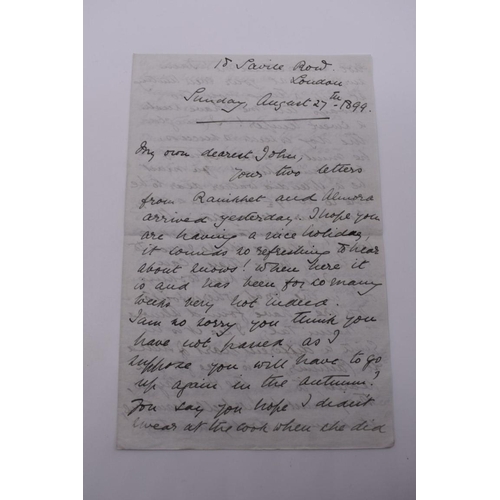 18 Savile Row.
London
Sunday, August 27th 1899.
My own dearest John,
Your two letters
from Ranikhet and Almora
arrived yesterday. I hope you
are having a nice holiday,
it sounds so refreshing to hear
about snows! When here it
is and has been for so many
weeks very hot indeed.
I am so sorry you think you
have not passed as I
suppose you will have to go
up again in the autumn?
You say you hope I didn't
swear at the cook when she did